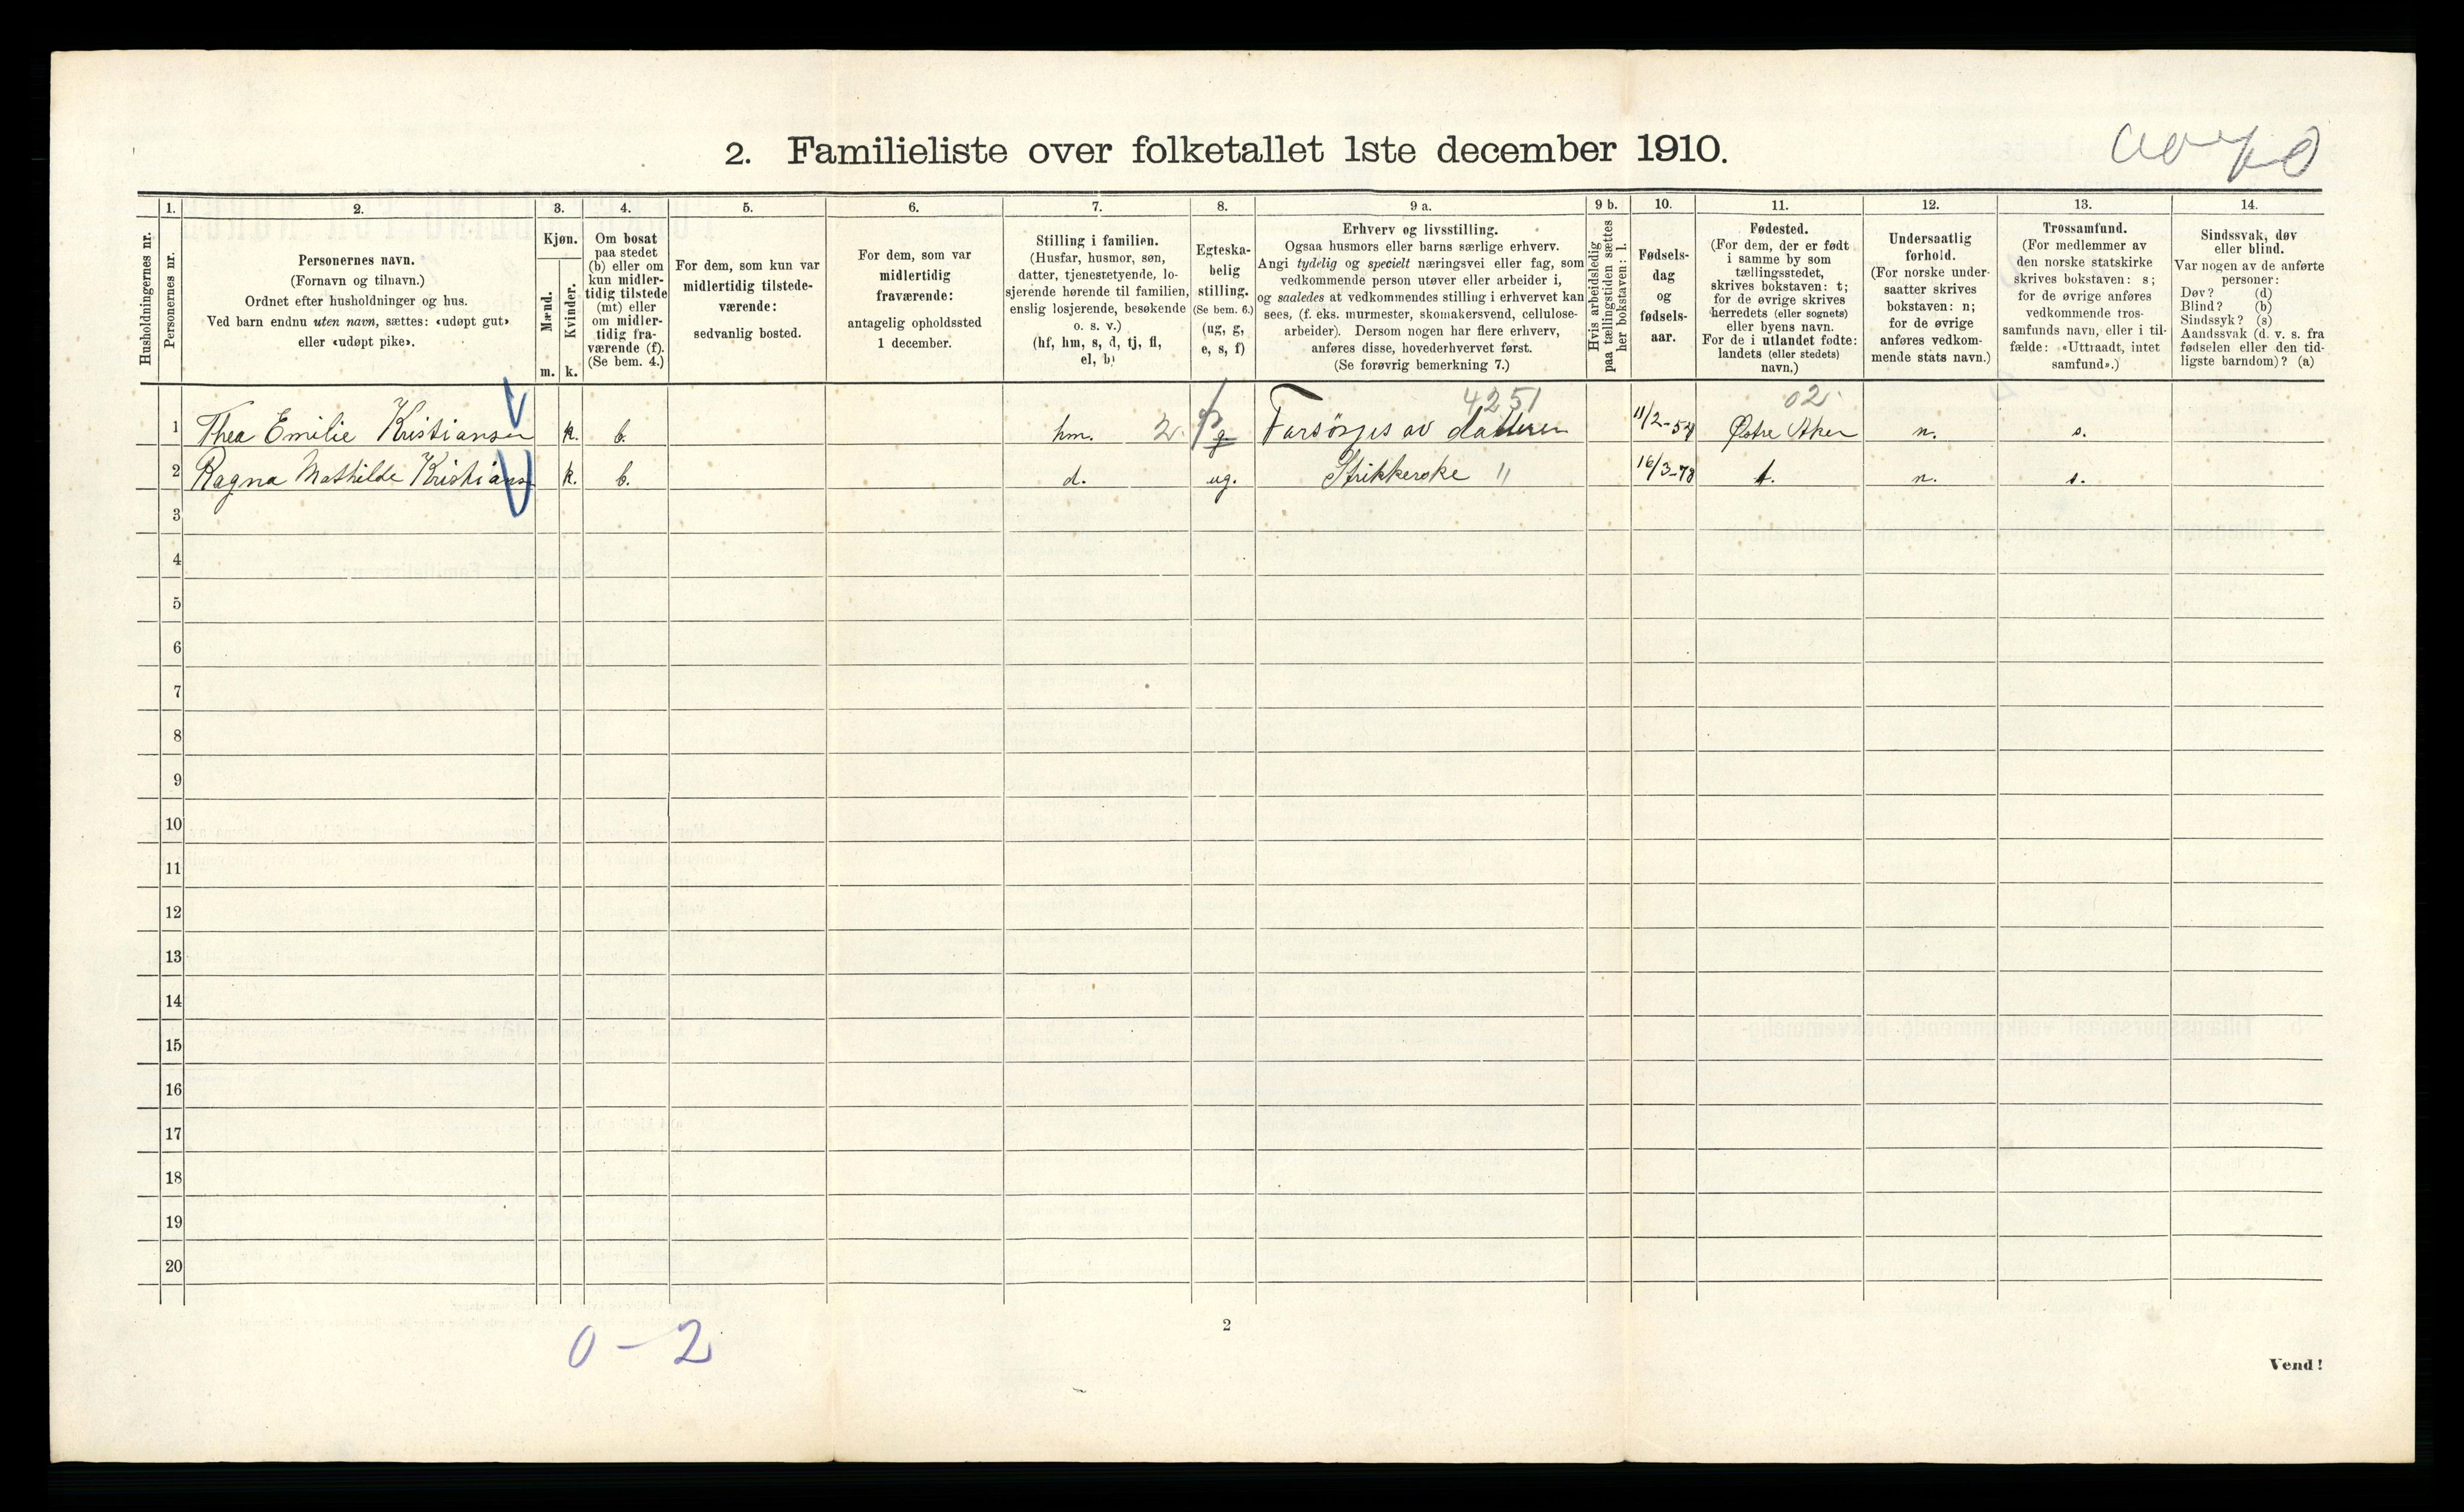 2. Familieliste over folketallet 1ste december 1910.
Husholdningernes nr.
1.
Personernes nr.
2.
Personernes navn.
(Fornavn og tilnavn.)
Ordnet efter husholdninger og hus.
Ved barn endnu uten navn, sættes: «udøpt gut»
eller «udøpt pike».
3.
Kjøn.
Mænd.
Kvinder.
m. k.
4.
Om bosat
paa stedet
(b) eller om
kun midler-
tidig tilstede
(mt) eller
om midler-
tidig fra-
værende (f).
(Se bem. 4.)
5.
For dem, som kun var
midlertidig tilstede-
værende:
sedvanlig bosted.
6.
For dem, som var
midlertidig
fraværende:
antagelig opholdssted
1 december.
7.
Stilling i familien.
(Husfar, husmor, søn,
datter, tjenestetyende, lo-
sjerende hørende til familien,
enslig losjerende, besøkende
o. s. v.)
(hf, hm, s, d, tj, fl,
el, b)
8.
Egteska-
belig
stilling.
(Se bem. 6.)
(ug, g,
e, s, f)
9 a.
Erhverv og livsstilling.
Ogsaa husmors eller barns særlige erhverv.
Angi tydelig og specielt næringsvei eller fag, som
vedkommende person utøver eller arbeider i,
og saaledes at vedkommendes stilling i erhvervet kan
sees, (f. eks. murmester, skomakersvend, cellulose-
arbeider). Dersom nogen har flere erhverv,
anføres disse, hovederhvervet først.
(Se forøvrig bemerkning 7.)
9 b.
Hvis arbeidsledig
paa tællingstiden sættes
her bokstaven: l.
10.
Fødsels-
dag
og
fødsels-
aar.
11.
Fødested.
(For dem, der er født
i samme by som
tællingsstedet,
skrives bokstaven: t;
for de øvrige skrives
herredets (eller sognets)
eller byens navn.
For de i utlandet fødte:
landets (eller stedets)
navn.)
12.
Undersaatlig
forhold.
(For norske under-
saatter skrives
bokstaven: n;
for de øvrige
anføres vedkom-
mende stats navn.)
13.
Trossamfund.
(For medlemmer av
den norske statskirke
skrives bokstaven: s;
for de øvrige anføres
vedkommende tros-
samfunds navn, eller i til-
fælde: «Uttraadt, intet
samfund».)
14.
Sindssvak, døv
eller blind.
Var nogen av de anførte
personer:
Døv? (d)
Blind? (b)
Sindssyk? (s)
Aandssvak (d. v. s. fra
fødselen eller den tid-
ligste barndom)? (a)
4251 02
1 Thea Emilie Kristiansen k. b. hm. 2 g Farsørjes av datteren 11/2-54 Østre Aker n. s.
2 Ragna Mathilde Kristians k. b. d. ug. Strikkerske " 16/3-78 t. n. s.
3
4
5
6
7
8
9
10
11
12
13
14
15
16
17
18
19
20
0-2
2
Vend!